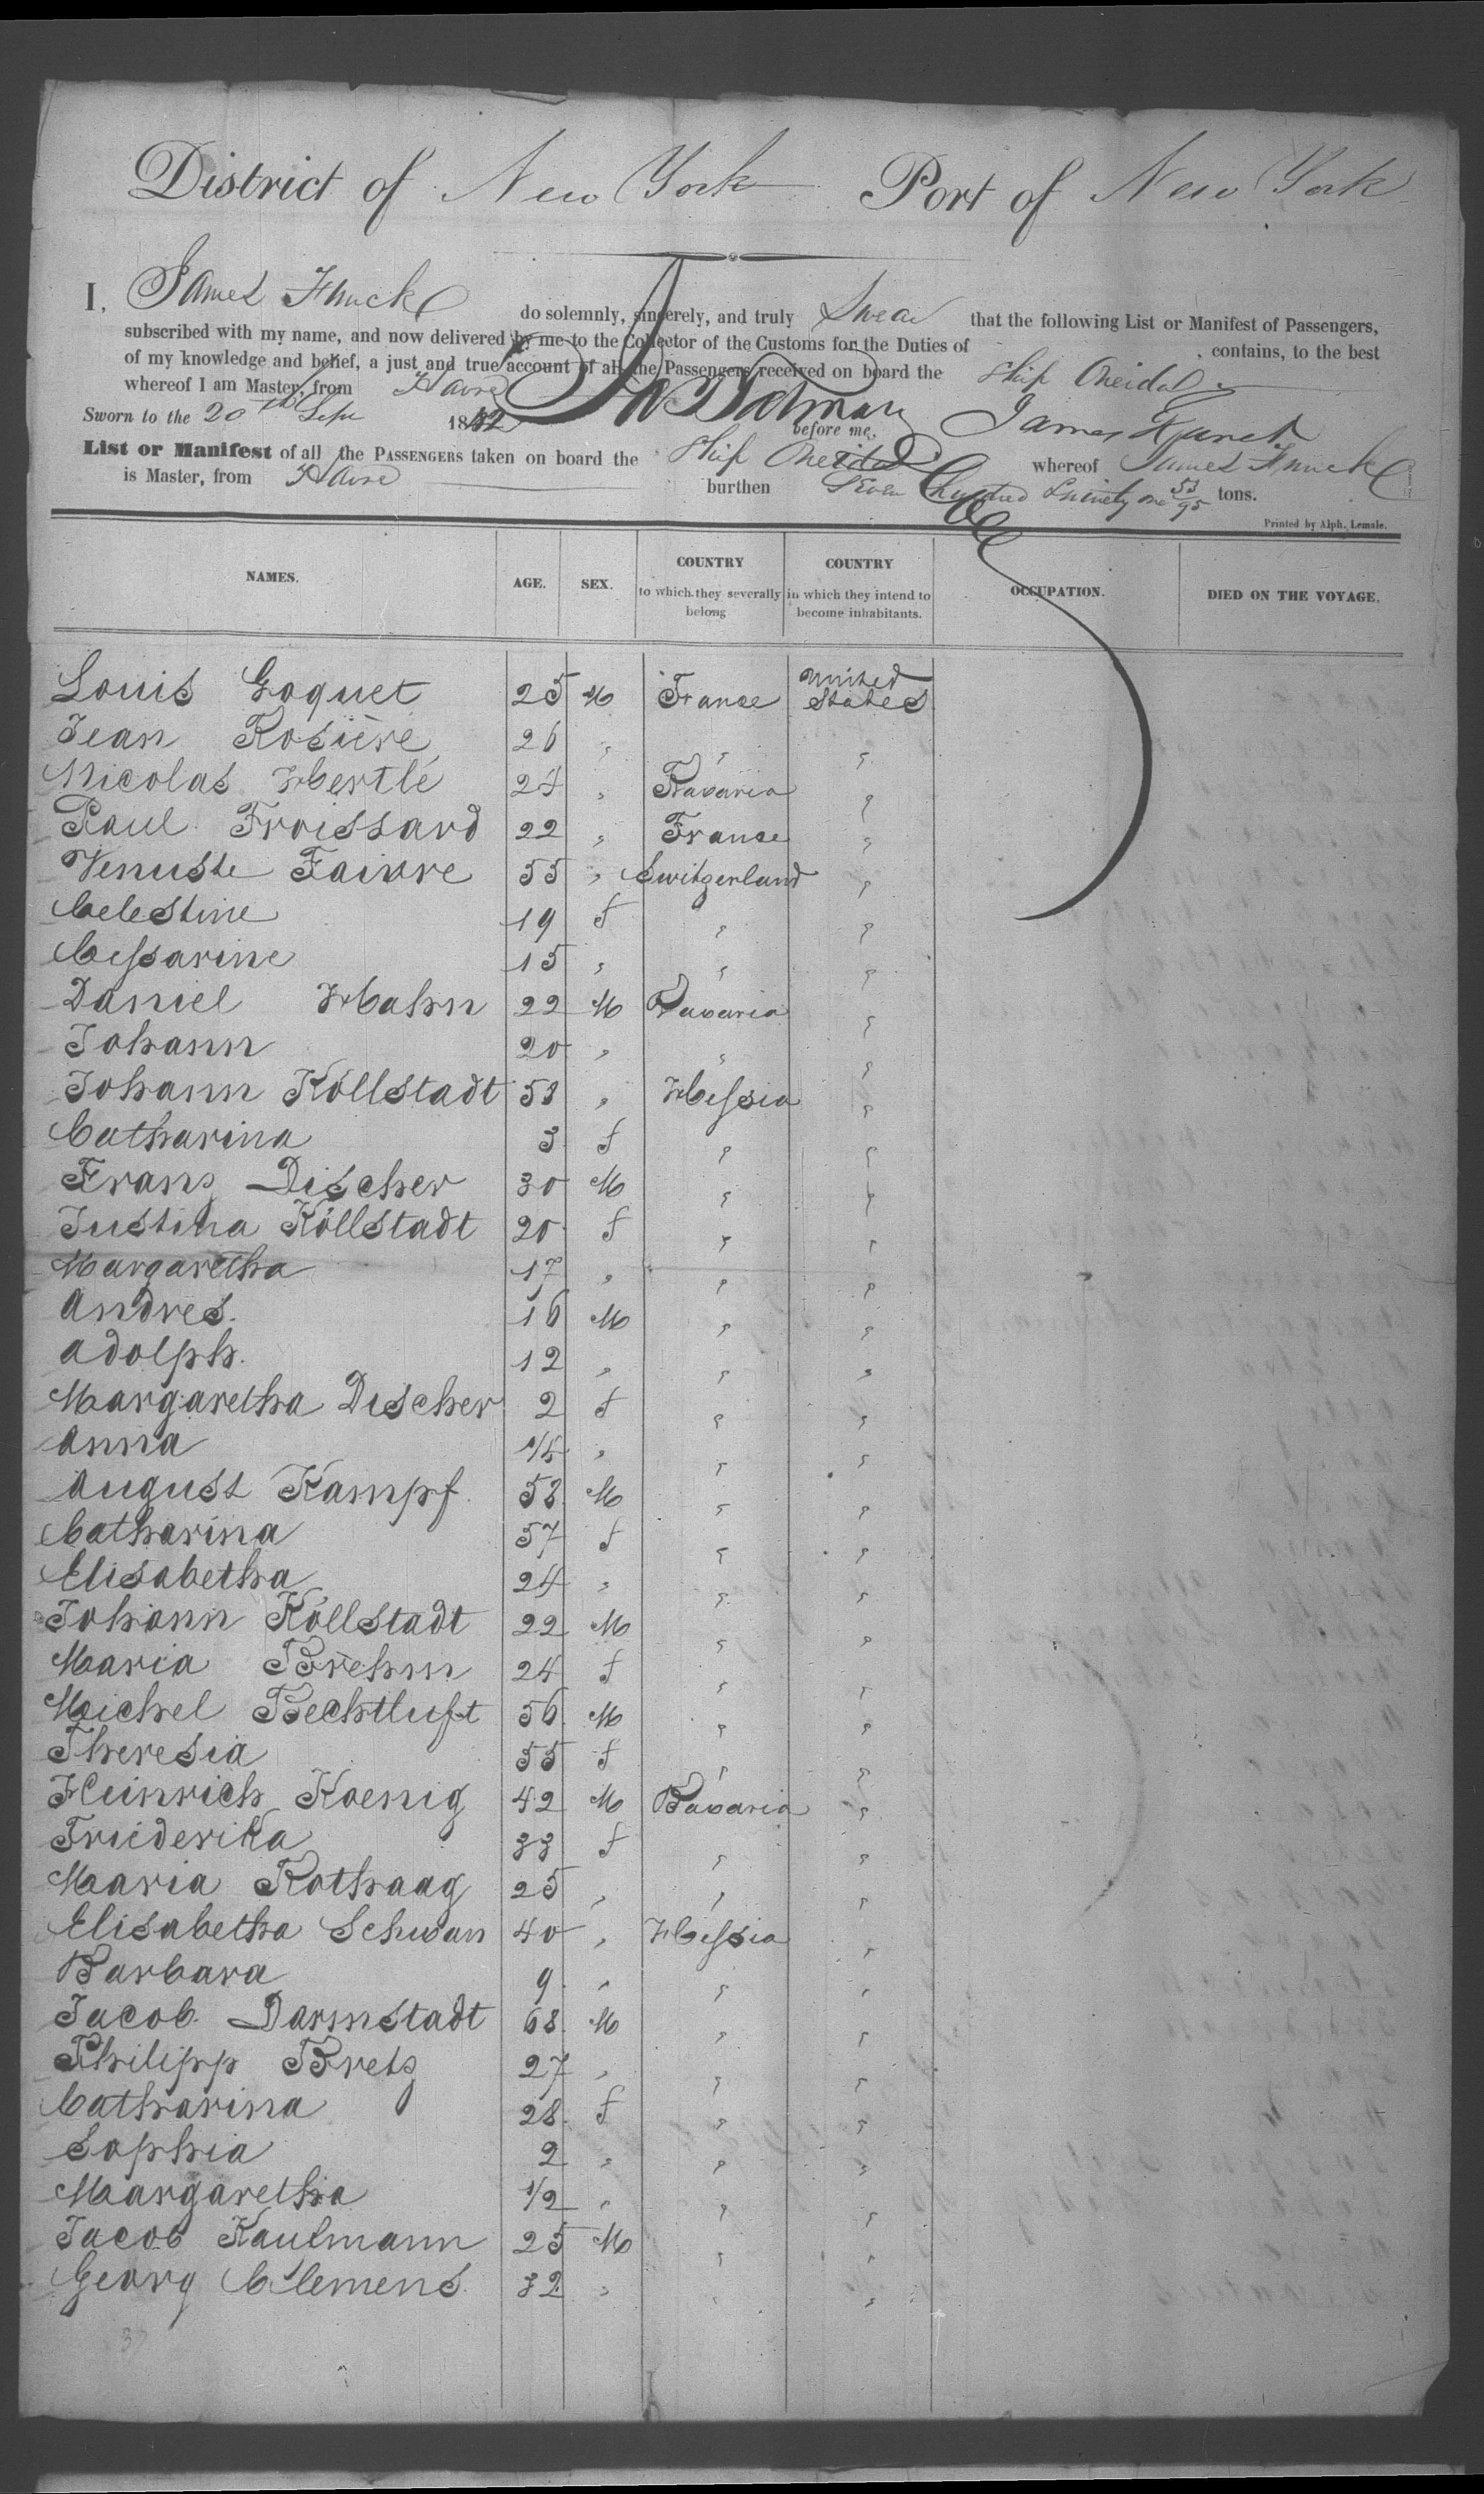 District of New York Port of New York
I, James Funck do solemnly, sincerely, and truly Swear that the following List or Manifest of Passengers,
subscribed with my name, and now delivered by me to the Collector of the Customs for the Duties of , contains, to the best
of my knowledge and belief, a just and true account of all the Passengers received on board the Ship Oneida
whereof I am Master, from Havre
Sworn to the 20th Sepr 1842 before me, James Funck
List or Manifest of all the PASSENGERS taken on board the Ship Oneida whereof James Funck
is Master, from Havre burthen Seven hundred & ninety one 53/95 tons.
Printed by Alph. Lemale.
NAMES. AGE. SEX. COUNTRY to which they severally belong COUNTRY in which they intend to become inhabitants. OCCUPATION. DIED ON THE VOYAGE.
Louis Goquet 25 M France United States
Jean Rosière 26 " " "
Nicolas Hertlé 24 " Bavaria "
Paul Froissard 22 " France "
Venuste Faivre 55 " Switzerland "
Celestine 19 f " "
Cessarine 15 " " "
Daniel Hahn 22 M Bavaria "
Johann 20 " " "
Johann Köllstadt 53 " Hessia "
Catharina 3 f " "
Franz Discher 30 M " "
Justina Köllstadt 20 f " "
Margaretha 17 " " "
Andres. 16 M " "
Adolph. 12 " " "
Margaretha Discher 2 f " "
Anna 1/4 " " "
August Kampf. 58 M " "
Catharina 57 f " "
Elisabetha 24 " " "
Johann Köllstadt 22 M " "
Maria Brehm 24 f " "
Michel Bechtluft 56 M " "
Theresia 55 f " "
Heinrich Koenig 42 M Bavaria "
Friederika 33 f " "
Maria Rothaag 25 " " "
Elisabetha Schwan 40 " Hessia "
Barbara 9 " " "
Jacob Darmstadt 68 M " "
Philipp Bretz 27 " " "
Catharina 28 f " "
Sophia 2 " " "
Margaretha 1/2 " " "
Jacob Kaufmann 25 M " "
Georg Clemens. 32 " " "